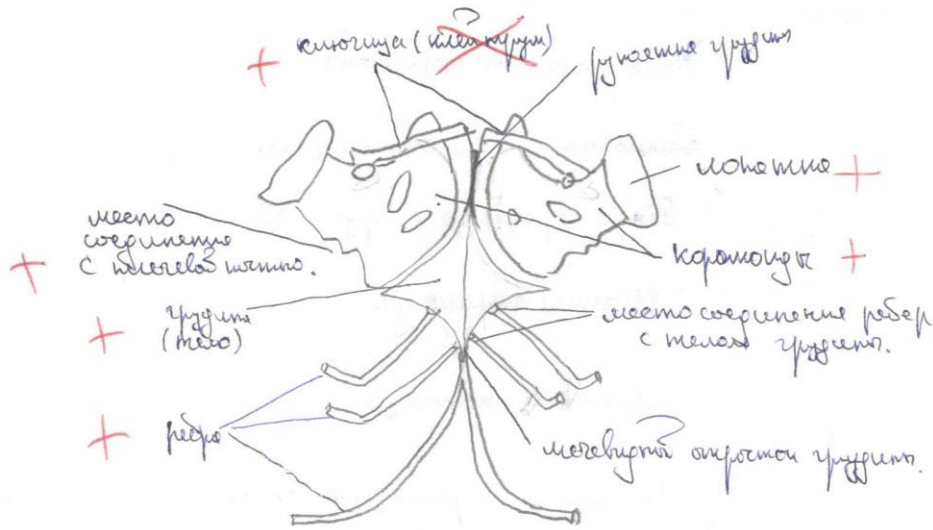 ключица (клейтрум)
рукоятка грудины
лопатка
место
соединения
с плечевой костью.
коракоиды
грудина
(тело)
место соединения ребер
с телом грудины.
ребра
мечевидный отросток грудины.